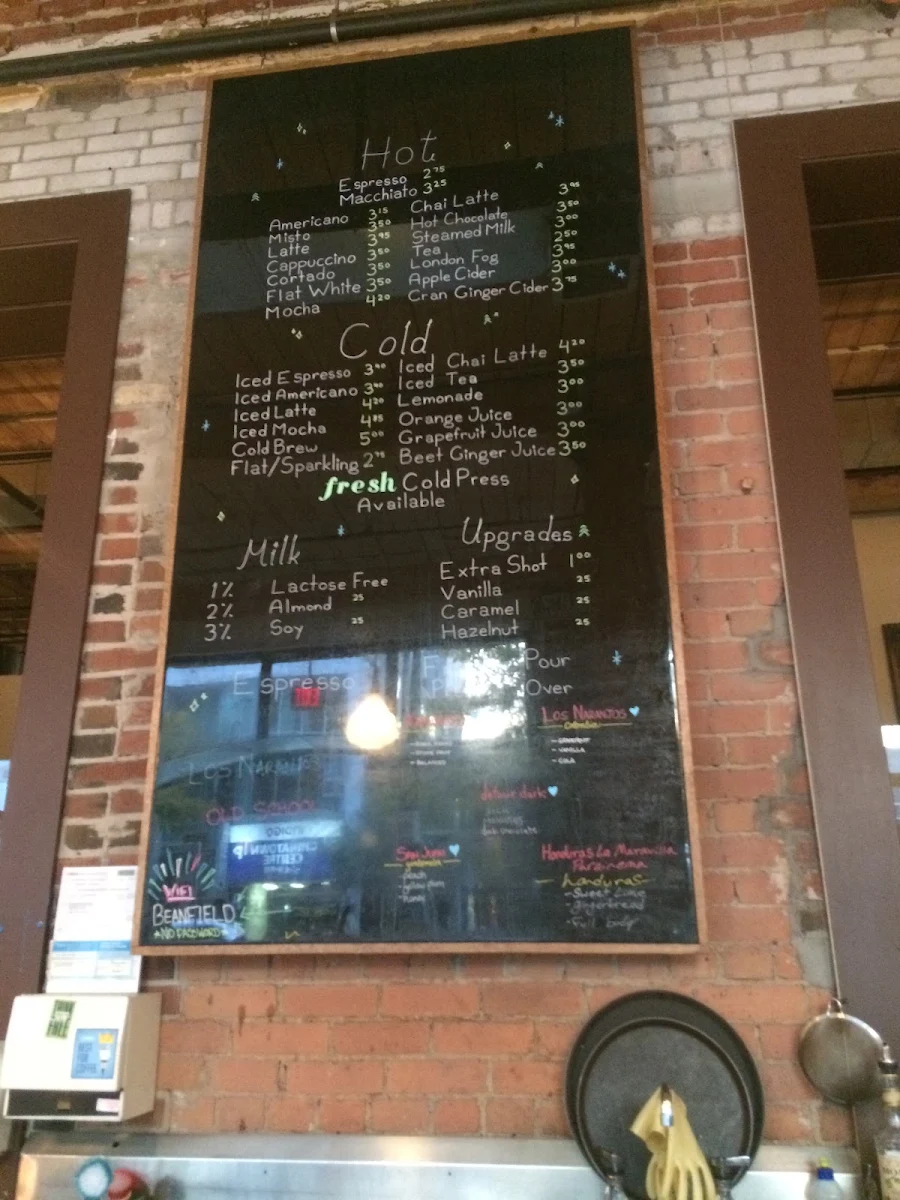 Hot
Espresso 2.75
Macchiato 3.25
Americano 3.15 Chai Latte 3.95
Misto 3.50 Hot Chocolate 3.50
Latte 3.95 Steamed Milk 3.00
Cappuccino 3.50 Tea 2.50
Cortado 3.50 London Fog 3.95
Flat White 3.50 Apple Cider 3.00
Mocha 4.20 Cran Ginger Cider 3.75
Cold
Iced Espresso Iced Chai Latte 4.20
Iced Americano Iced Tea 3.50
Iced Latte 4.20 Lemonade 3.00
Iced Mocha Orange Juice 3.00
Cold Brew 5.00 Grapefruit Juice 3.00
Flat/Sparkling Beet Ginger Juice 3.50
fresh Cold Press
Available
Milk
1% Lactose Free
2% Almond 25
3% Soy 25
Upgrades
Extra Shot 1.00
Vanilla 25
Caramel 25
Hazelnut 25
Espresso
Pour
Over
Los Naranjos
Colombia
- VANILLA
- COLA
OLD SCHOOL
San Juan
guatemala
- peach
- honey
Honduras La Maravilla
Parainema
honduras
- gingerbread
- full body
WIFI
BEANFIELD
NO PASSWORD